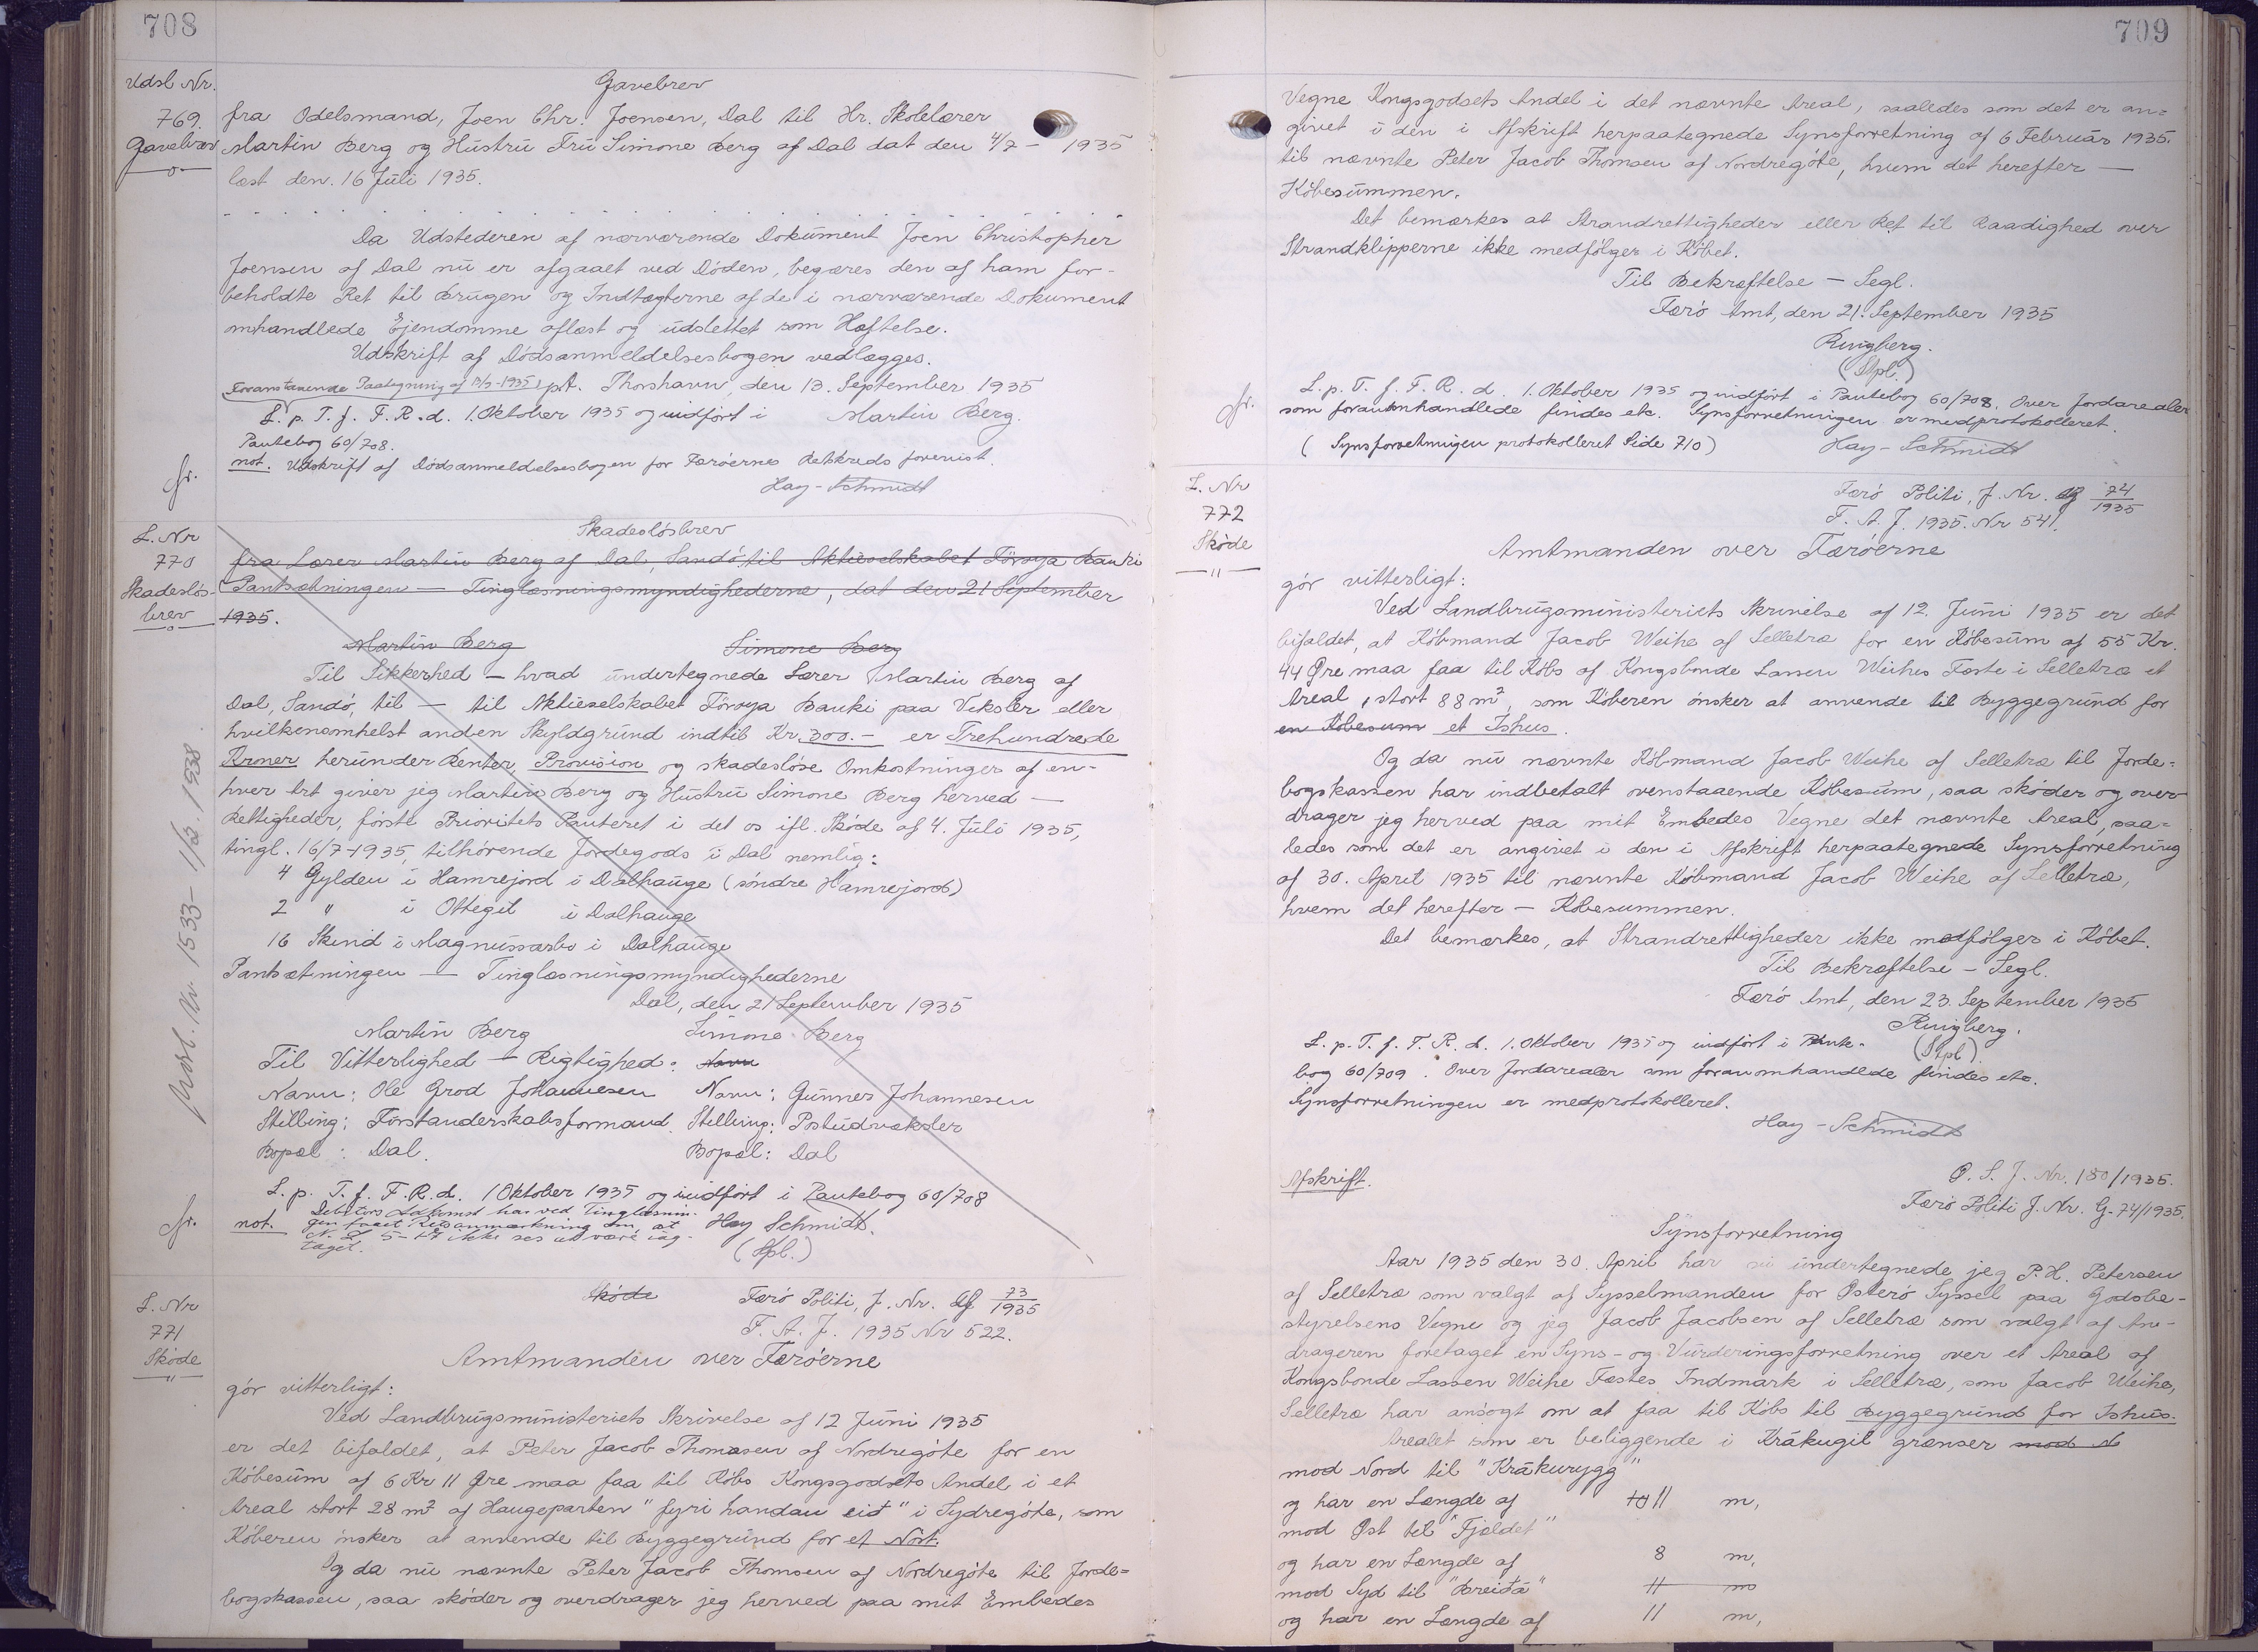 708
Udsl Nr.
769.
Gavebrev
Gavebrev
fra Odelsmand, Joen Chr. Joensen, Dal til Hr. Skolelærer
Martin Berg og Hustru Fru Simone Berg af Dal dat den 4/7 - 1935
læst den. 16 Juli 1935.
Da Udstederen af nærværende Dokument Joen Christopher
Joensen af Dal nu er afgaaet ved Døden, begæres den af ham for-
beholdte Ret til Brugen og Indtægterne af de i nærværende Dokument
omhandlede Ejendomme aflæst og udslettet som Hæftelse.
Udskrift af Dødsanmeldelsesbogen vedlægges.
Foranstaaende Paategning af 13/9-1935 p.t. Thorshavn, den 13. September 1935
L. p. T. f. F. R. d. 1. Oktober 1935 og indført i Martin Berg.
Pantebog 60/708.
not. Udskrift af Dødsanmeldelsesbogen for Færøernes Retskreds forevist.
Hay-Schmidt
L. Nr
770
Skadesløs-
brev
Skadesløsbrev
fra Lærer Martin Berg af Dal, Sandø, til Aktieselskabet Føroya Banki
Pantsætningen — Tinglæsningsmyndighederne, dat den 21 September
1935.
Martin Berg Simone Berg
Til Sikkerhed — hvad undertegnede Lærer Martin Berg af
Dal, Sandø, til — til Aktieselskabet Føroya Banki paa Veksler eller
hvilkensomhelst anden Skyldgrund indtil Kr. 300.- er Trehundrede
Kroner herunder Renter, Provision og skadesløse Omkostninger af en-
hver Art giver jeg Martin Berg og Hustru Simone Berg herved —
Rettigheder, første Prioritets Panteret i det os ifl. Skøde af 4. Juli 1935,
tingl. 16/7-1935, tilhørende Jordegods i Dal nemlig:
4 Gylden i Hamrejord i Dalhauge (søndre Hamrejord)
2 " i Ottegil i Dalhauge
16 Skind i Magnussarbo i Dalhauge
Pantsætningen — Tinglæsningsmyndighederne
Dal, den 21 September 1935
Martin Berg Simone Berg
Til Vitterlighed — Rigtighed: Navn
Navn: Ole Grod Johannesen Navn: Gunner Johannesen
Stilling: Forstanderskabsformand. Stilling: Postudveksler
Bopæl: Dal. Bopæl: Dal
L. p. T. f. F. R. d. 1 Oktober 1935 og indført i Pantebog 60/708
not. Debitors Adkomst har ved Tinglæsnin-
gen faaet Retsanmærkning om, at Hay Schmidt.
ikke ses at være iag-
taget. (Stpl.)
Nr. 1533 - 11/2. 1938.
L. Nr
771
Skøde
Skøde Færø Politi, J. Nr. 73/1935
F. A. J. 1935 Nr 522.
Amtmanden over Færøerne
gør vitterligt:
Ved Landbrugsministeriets Skrivelse af 12 Juni 1935
er det bifaldet, at Peter Jacob Thomsen af Nordregøte for en
Købesum af 6 Kr 11 Øre maa faa til Købs Kongsgodsets Andel i et
Areal stort 28 m² af Haugeparten "fyri handan eið" i Sydregøte, som
Køberen ønsker at anvende til Byggegrund for et Nøst.
Og da nu nævnte Peter Jacob Thomsen af Nordregøte til Jorde=
bogskassen, saa skøder og overdrager jeg herved paa mit Embedes
709
Vegne Kongsgodsets Andel i det nævnte Areal, saaledes som det er an=
givet i den i Afskrift herpaategnede Synsforretning af 6 Februar 1935.
til nævnte Peter Jacob Thomsen af Nordregøte, hvem det herefter —
Købesummen.
Det bemærkes at Strandrettigheder eller Ret til Raadighed over
Strandklipperne ikke medfølger i Købet.
Til Bekræftelse — Segl.
Færø Amt, den 21. September 1935
Ringberg.
(Stpl.)
L. p. T. f. F. R. d. 1. Oktober 1935 og indført i Pantebog 60/708. Over Jordarealer
som foranomhandlede findes etc. Synsforretningen er medprotokolleret.
(Synsforretningen protokolleret Side 710) Hay-Schmidt
L. Nr
772
Skøde
Færø Politi, J. Nr. 74/1935
F. A. J. 1935. Nr 541.
Amtmanden over Færøerne
gør vitterligt:
Ved Landbrugsministeriets Skrivelse af 12. Juni 1935 er det
bifaldet, at Købmand Jacob Weihe af Selletræ for en Købesum af 55 Kr.
44 Øre maa faa til Købs af Kongsbonde Lassen Weihes Fæste i Selletræ et
Areal, stort 88 m², som Køberen ønsker at anvende til Byggegrund for
en Købesum et Ishus.
Og da nu nævnte Købmand Jacob Weihe af Selletræ til Jorde=
bogskassen har indbetalt ovenstaaende Købesum, saa skøder og over-
drager jeg herved paa mit Embedes Vegne det nævnte Areal, saa=
ledes som det er angivet i den i Afskrift herpaategnede Synsforretning
af 30. April 1935 til nævnte Købmand Jacob Weihe af Selletræ,
hvem det herefter — Købesummen.
Det bemærkes, at Strandrettigheder ikke medfølger i Købet.
Til Bekræftelse — Segl.
Færø Amt, den 23. September 1935
Ringberg.
L. p. T. f. F. R. d. 1. Oktober 1935 og indført i Pante- (Stpl).
bog 60/709. Over Jordarealer som foranomhandlede findes etc.
Synsforretningen er medprotokolleret.
Hay-Schmidt
Afskrift. Ø. S. J. Nr. 180/1935.
Færø Politi J. Nr. G-74/1935.
Synsforretning
Aar 1935 den 30. April har vi undertegnede jeg P. H. Petersen
af Selletræ som valgt af Sysselmanden for Østerø Syssel paa Godsbe-
styrelsens Vegne og jeg Jacob Jacobsen af Selletræ som valgt af An-
drageren foretaget en Syns- og Vurderingsforretning over et Areal af
Kongsbonde Lassen Weihe Fæstes Indmark i Selletræ, som Jacob Weihe,
Selletræ har ansøgt om at faa til Købs til Byggegrund for Ishus.
Arealet som er beliggende i Krákugil grænser mod N
mod Nord til "Krákurygg"
og har en Længde af 11 m,
mod Øst til "Fjældet"
og har en Længde af 8 m,
mod Syd til "Breiðá" 11 m
og har en Længde af 11 m,